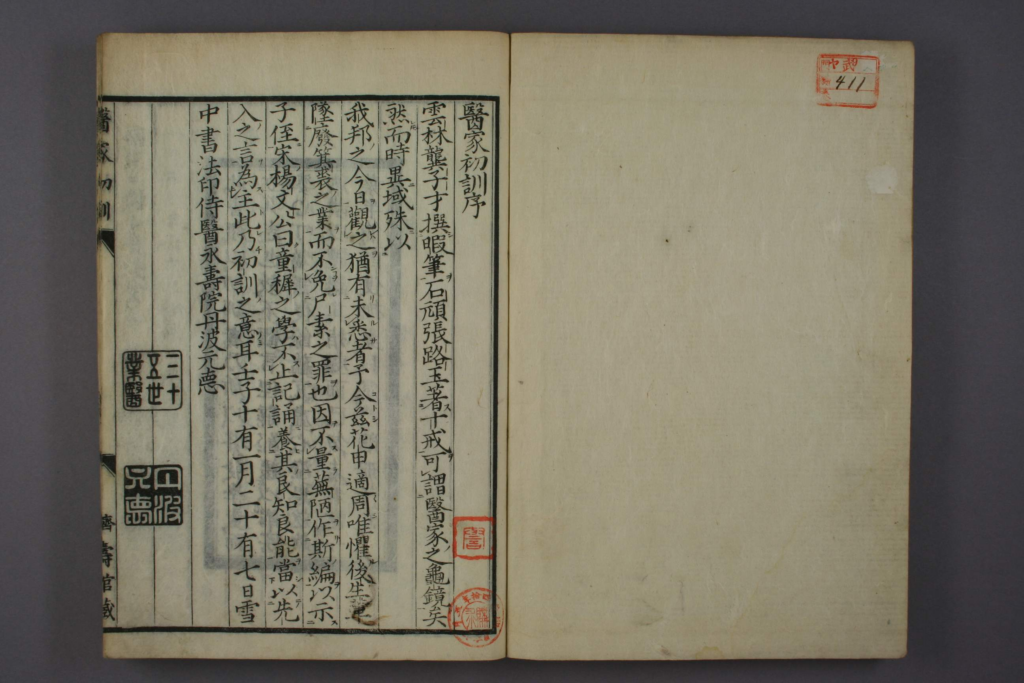 中
411
醫家初訓序
雲林龔子才撰暇筆石頑張路玉著十戒可謂醫家之龜鏡矣
然而時異域殊以
我邦之今日觀之猶有未悉者予今茲花甲適周唯懼後生之
墜廢箕裘之業而不免尸素之罪也因不量蕪陋作斯編以示
子侄宋楊文公曰童穉之學不止記誦養其良知良能當以先
入之言為主此乃初訓之意耳壬子十有一月二十有七日雪
中書法印侍醫永壽院丹波元悳
三十
五世
業醫
丹波
元悳
醫家初訓
濟壽館藏